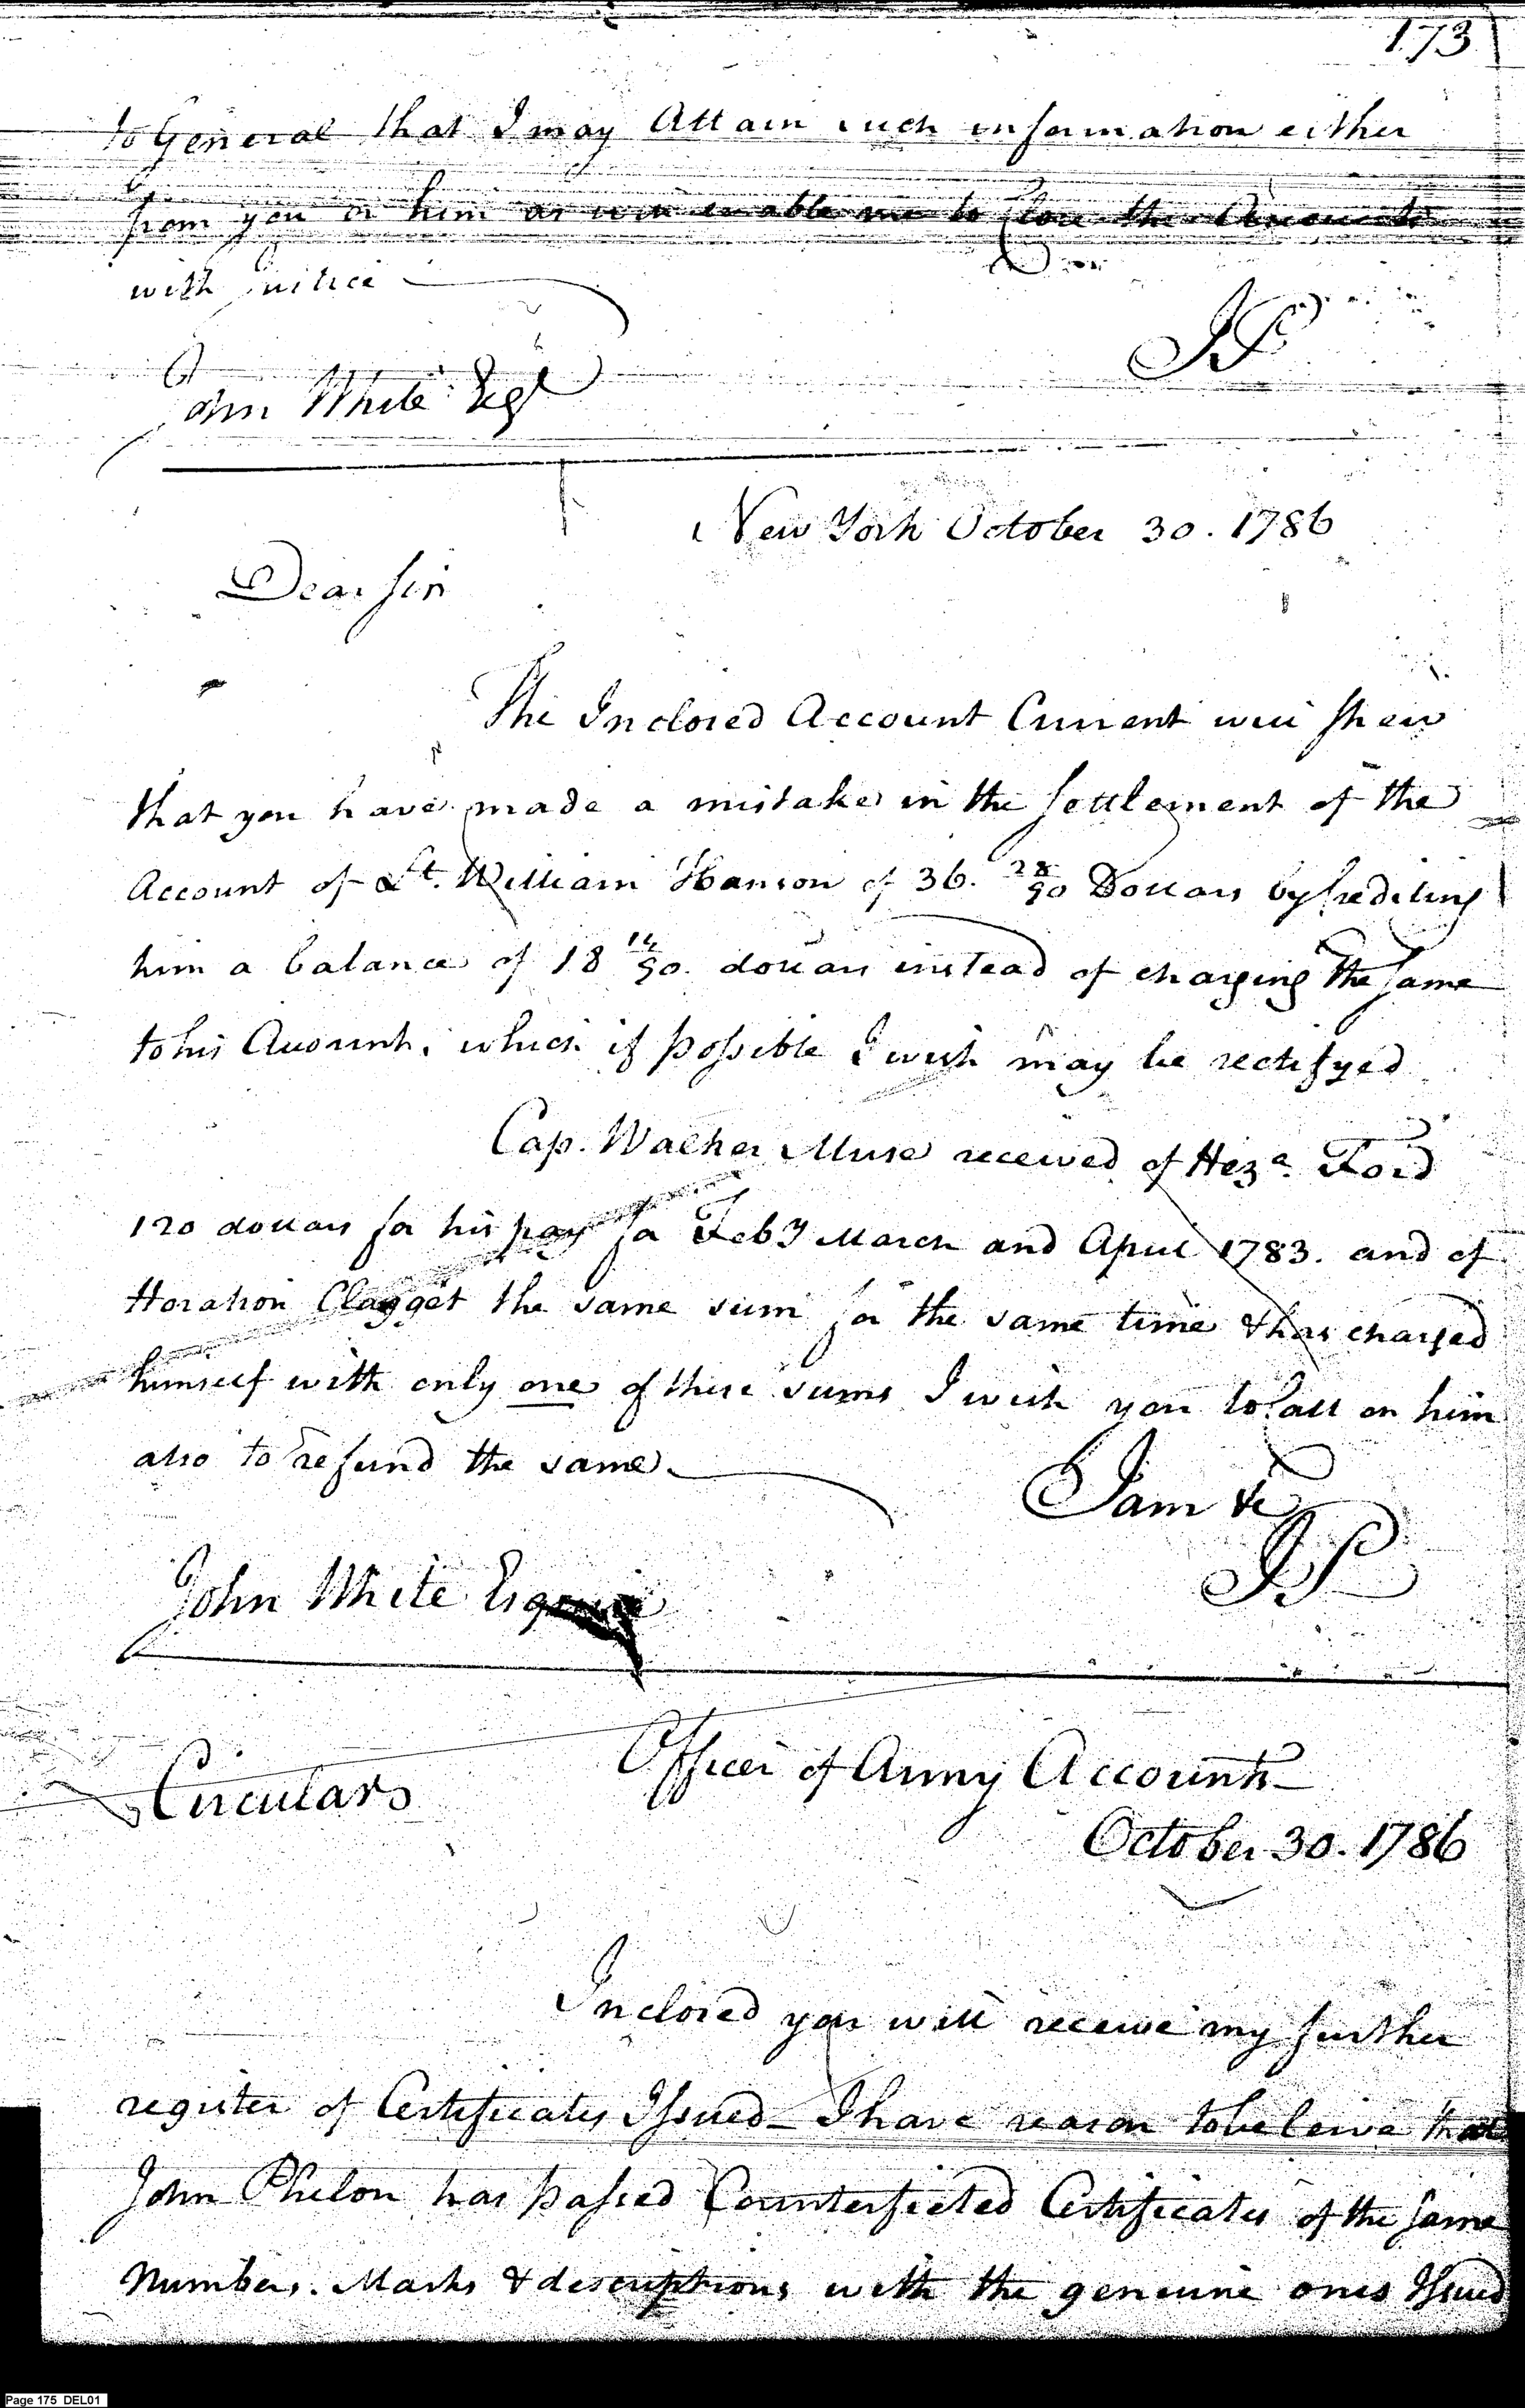 173
to General that I may Attain such information either
from you or him as will enable me to Close the Accounts
with Justice
JP
John White Esqr
New York October 30. 1786
Dear Sir
The Inclosed Account Current will shew
that you have made a mistake in the Settlement of the
Account of Lt. William Hanson of 36. 28/90 Dollars by Crediting
him a balance of 18 14/90. dollars instead of charging the same
to his Account. which if possible I wish may be rectifyed
Cap. Walker Muse received of Heza. Ford
120 dollars for his pay for Feby March and April 1783. and of
Horation Clagget the same sum for the same time & has charged
himself with only one of these sums I wish you to Call on him
also to refund the same
I am &c
JP
John White Esquire
Circulars
Office of Army Accounts
October 30. 1786
Inclosed you will receive my further
register of Certificates Issued - I have reason to beleive that
John Phelon has passed Counterfieted Certificates of the same
Numbers. Marks & descriptions with the genuine ones Issued
Page 175 DEL01